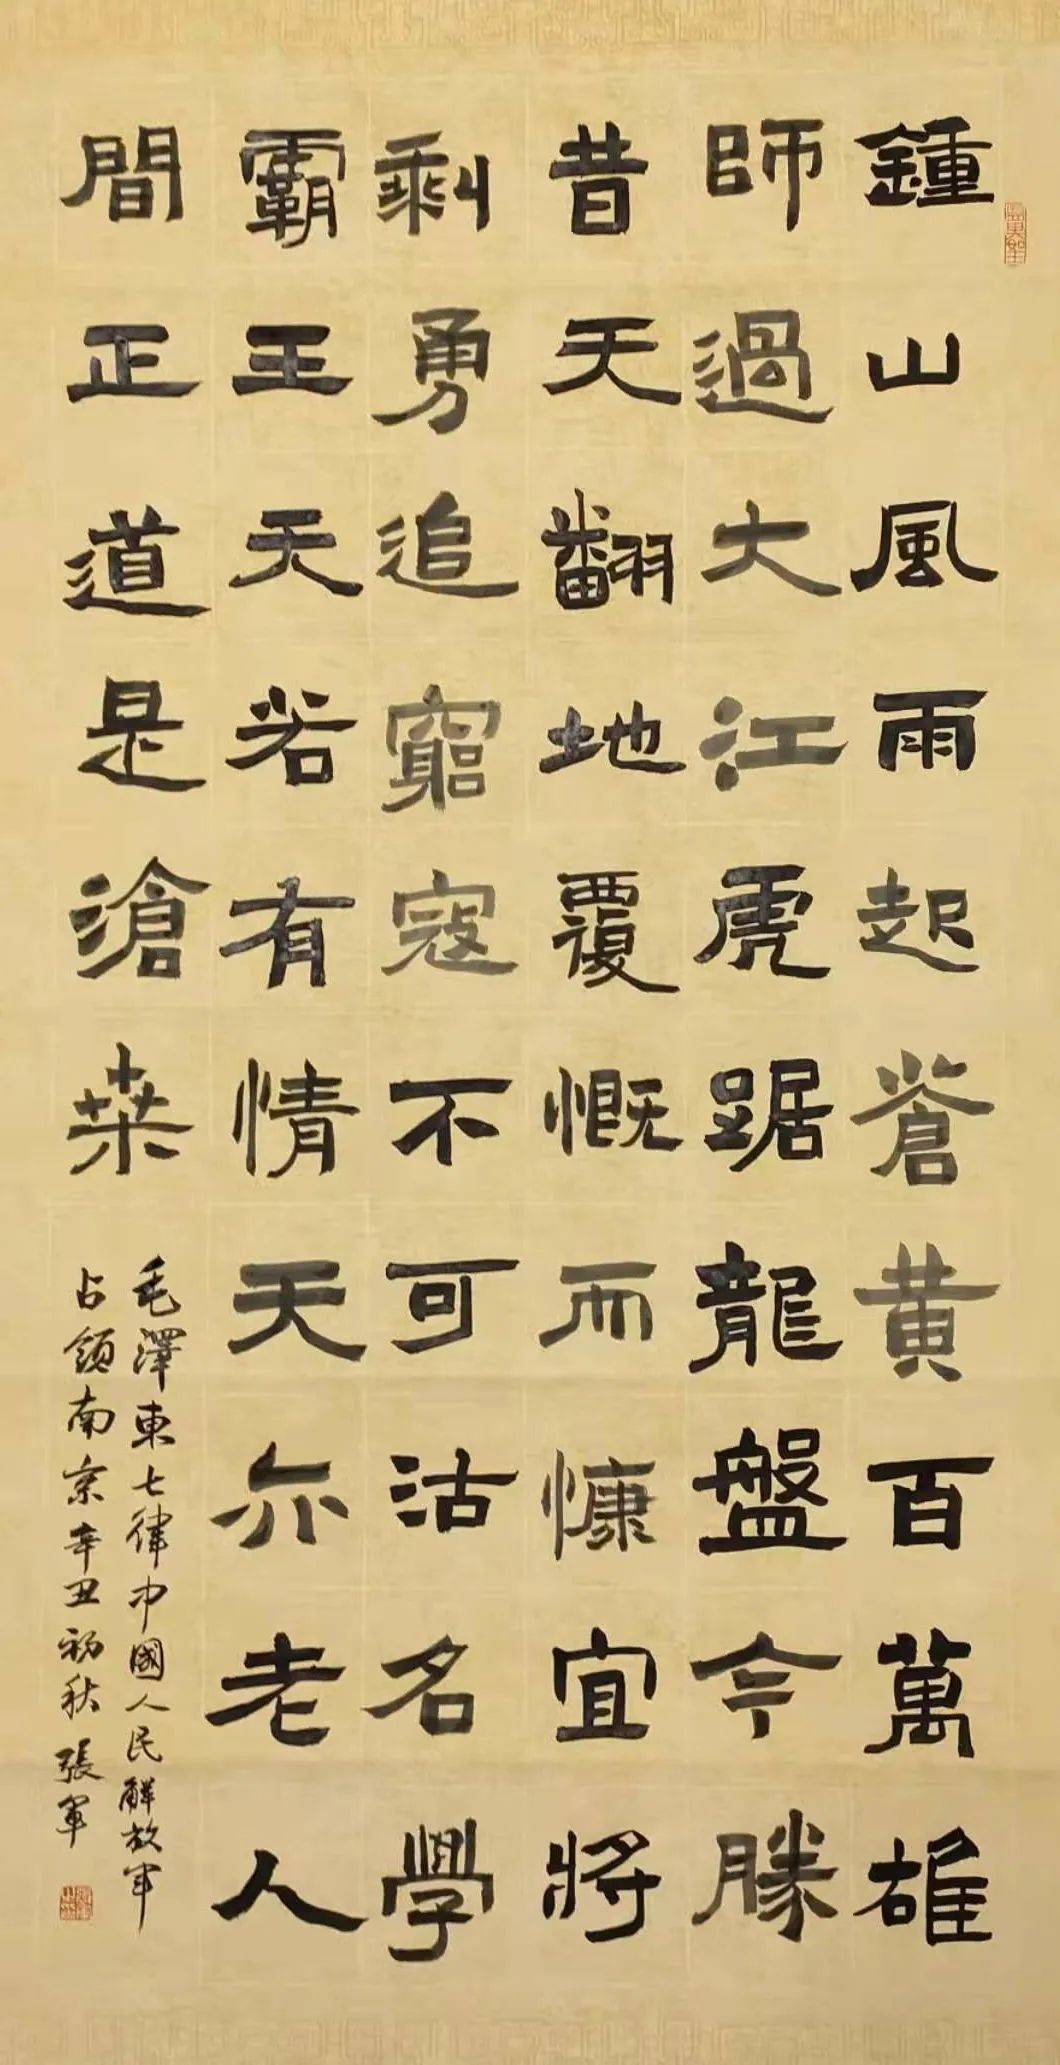 鍾山風雨起蒼黃百萬雄
師過大江虎踞龍盤今勝
昔天翻地覆慨而慷宜將
剩勇追窮寇不可沽名學
霸王天若有情天亦老人
間正道是滄桑
毛澤東七律中國人民解放軍
占領南京辛丑初秋 張軍